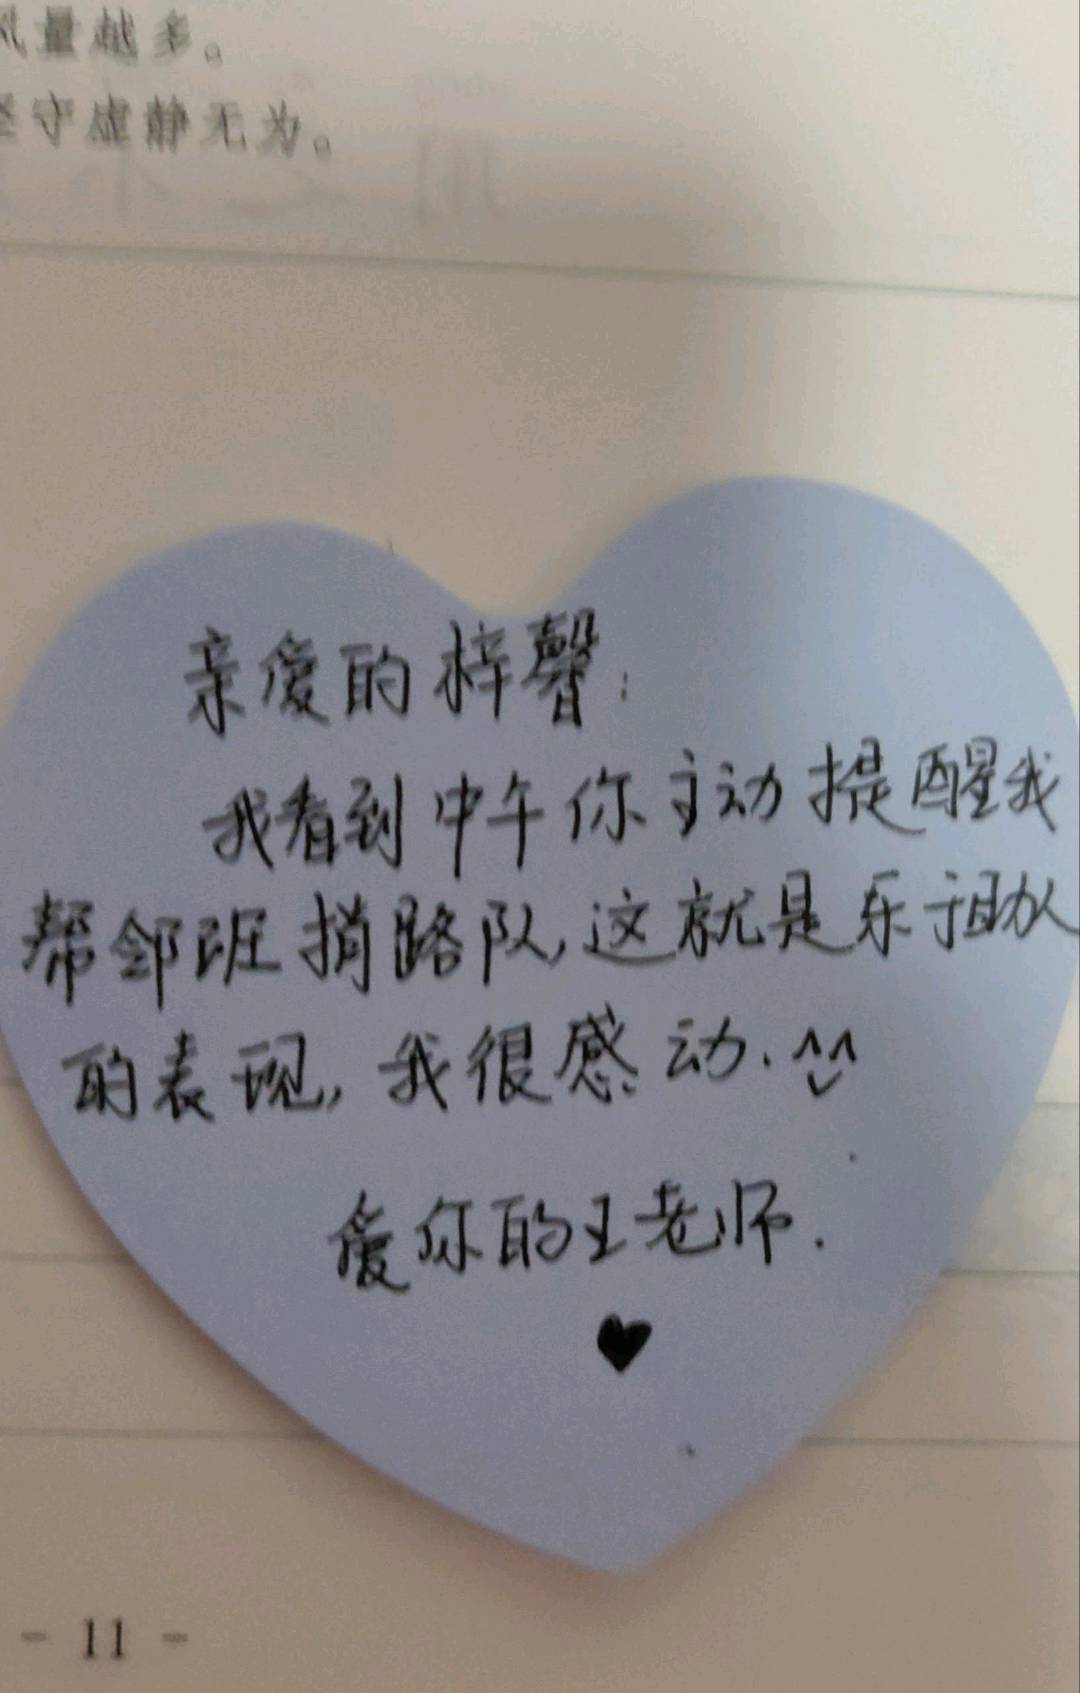 风量越多。
坚守虚静无为。
亲爱的梓馨:
我看到中午你主动提醒我
帮邻班捎路队,这就是乐于助人
的表现,我很感动.^^
爱你的王老师.
♥
- 11 -